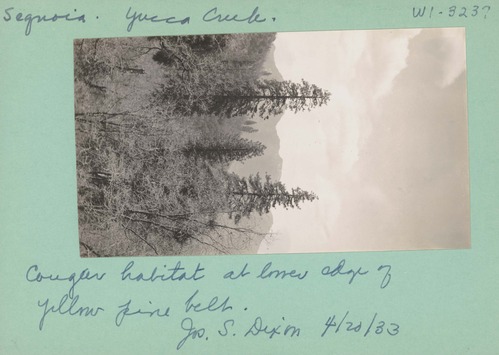 Sequoia. Yucca Creek. W1-323?
Cougar habitat at lower edge of
yellow pine belt.
Jos. S. Dixon 4/20/33